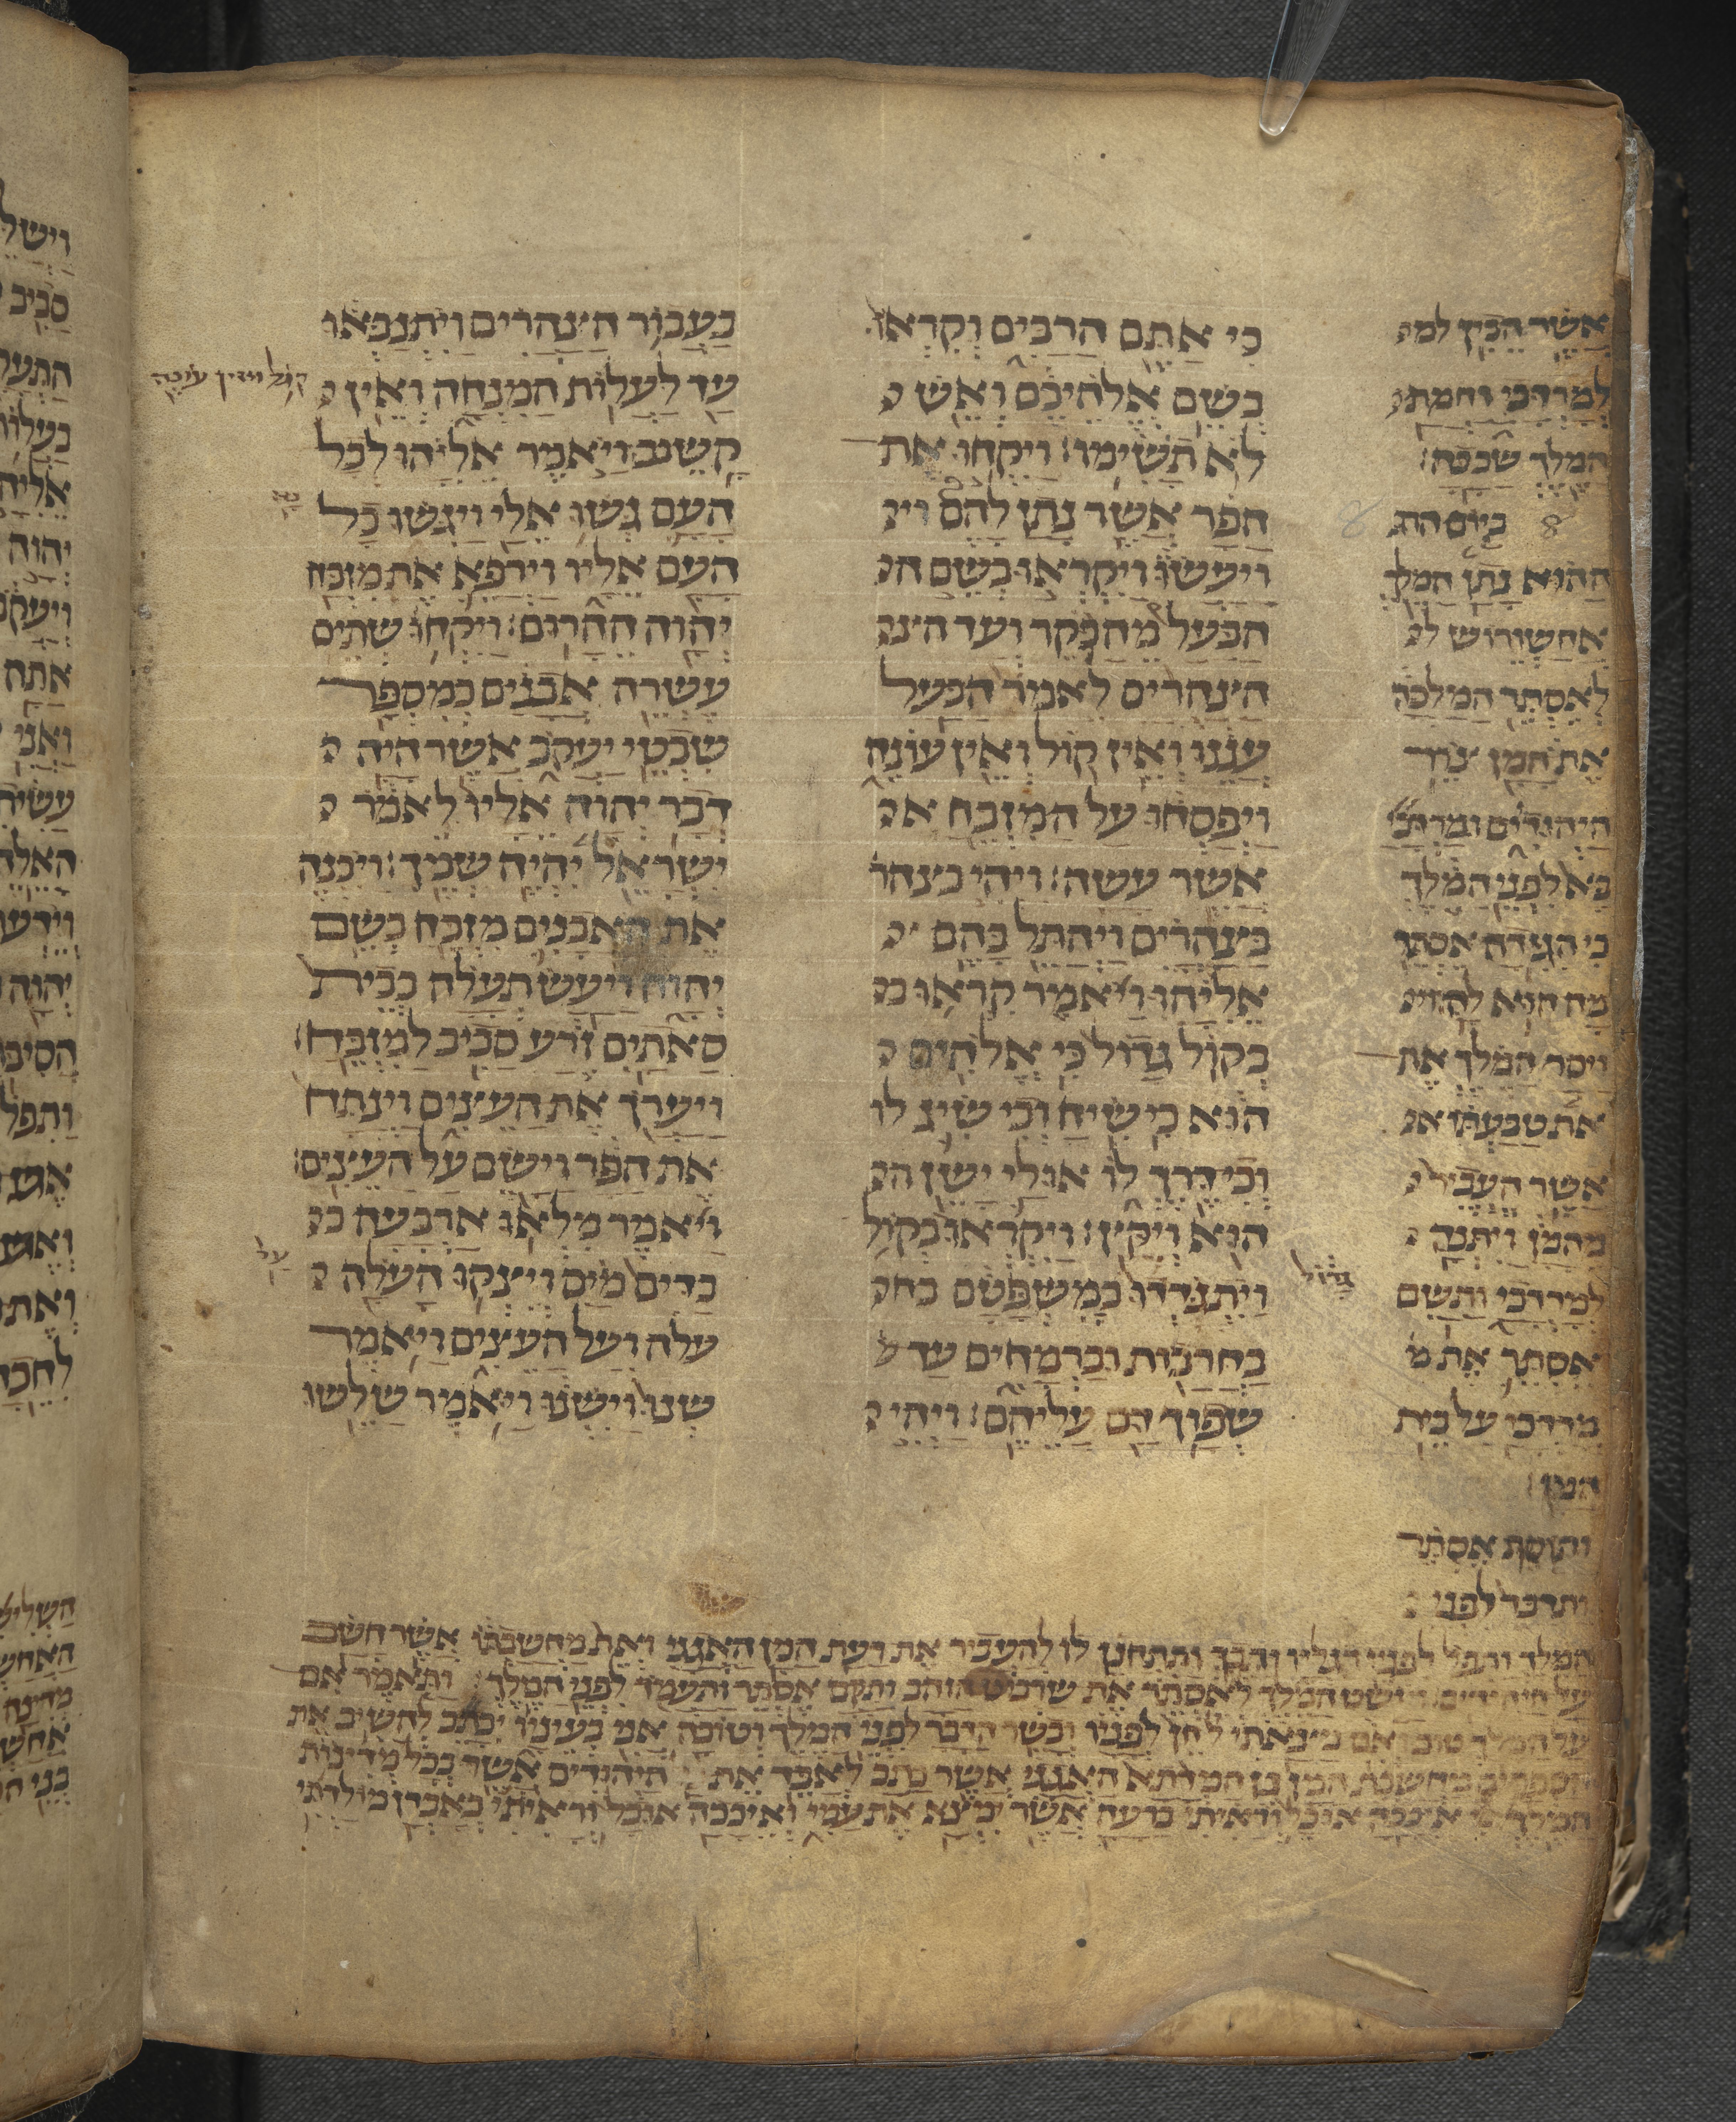 אשר הכין למ
למרדכי וחמת
המלך שככה׃
ביום הה
ההוא נתן המלך
אחשורוש ל
לאסתר המלכה
את המן צרר
היהודים ומרדכי
בא לפני המלך
כי הגידה אסתר
מה הוא לה׃ וי
ויסר המלך את
את טבעתו א
אשר העביר
מהמן ויתנה
למרדכי ותשם
אסתר את מ
מרדכי על בית
המן׃
ותוסף אסתר
ותדבר לפני
כי אתם הרבים וקראו
בשם אלהיכם ואש
לא תשימו׃ ויקחו את
הפר אשר נתן להם וי
ויעשו ויקראו בשם ה
הבעל מהבקר ועד הצ
הצהרים לאמר הבעל
עננו ואין קול ואין עונה
ויפסחו על המזבח א
אשר עשה׃ ויהי בצהר
בצהרים ויהתל בהם
אליהו ויאמר קראו ב
בקול גדול כי אלהים
הוא כי שיח וכי שיג לו
וכי דרך לו אולי ישן ה
הוא ויקץ׃ ויקראו בקול
גדול
ויתגדדו כמשפטם בח
בחרבות וברמחים עד
שפוך דם עליהם׃ ויהי
כעבור הצהרים ויתנבאו
עד לעלות המנחה ואין
קול ואין עונה
קשב׃ ויאמר אליהו לכל
העם גשו אלי ויגשו כל
העם אליו וירפא את מזבח
יהוה ההרוס׃ ויקח שתים
עשרה אבנים כמספר
שבטי יעקב אשר היה
דבר יהוה אליו לאמר
ישראל יהיה שמך׃ ויבנה
את האבנים מזבח בשם
יהוה ויעש תעלה כבית
סאתים זרע סביב למזבח׃
ויערך את העצים וינתח
את הפר וישם על העצים׃
ויאמר מלאו ארבעה כ
כדים מים ויצקו העלה
על
עלה ועל העצים ויאמר
שנו וישנו ויאמר שלשו
המלך ותפל לפני רגליו ותבך ותתחנן לו להעביר את רעת המן האגגי ואת מחשבתו אשר חשב
על היהודים׃ ויושט המלך לאסתר את שרבט הזהב ותקם אסתר ותעמד לפני המלך׃ ותאמר אם
על המלך טוב ואם מצאתי חן לפניו וכשר הדבר לפני המלך וטובה אני בעיניו יכתב להשיב את
הספרים מחשבת המן בן המדתא האגגי אשר כתב לאבד את היהודים אשר בכל מדינות
המלך׃ כי איככה אוכל וראיתי ברעה אשר ימצא את עמי ואיככה אוכל וראיתי באבדן מולדתי